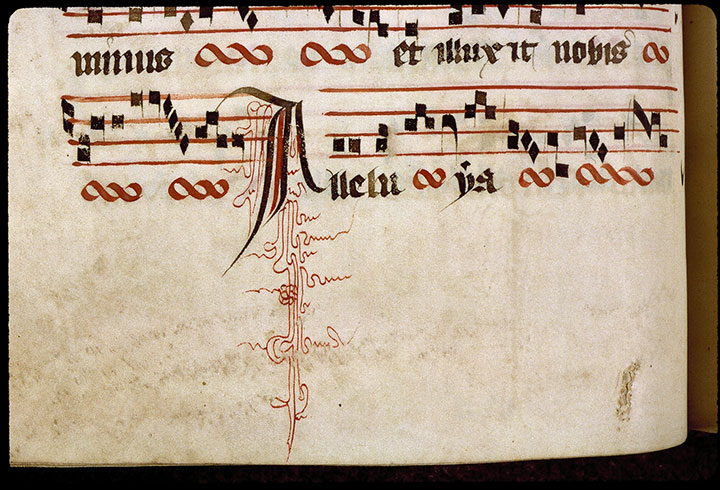 minus et illuxit nobis
Allelu ya